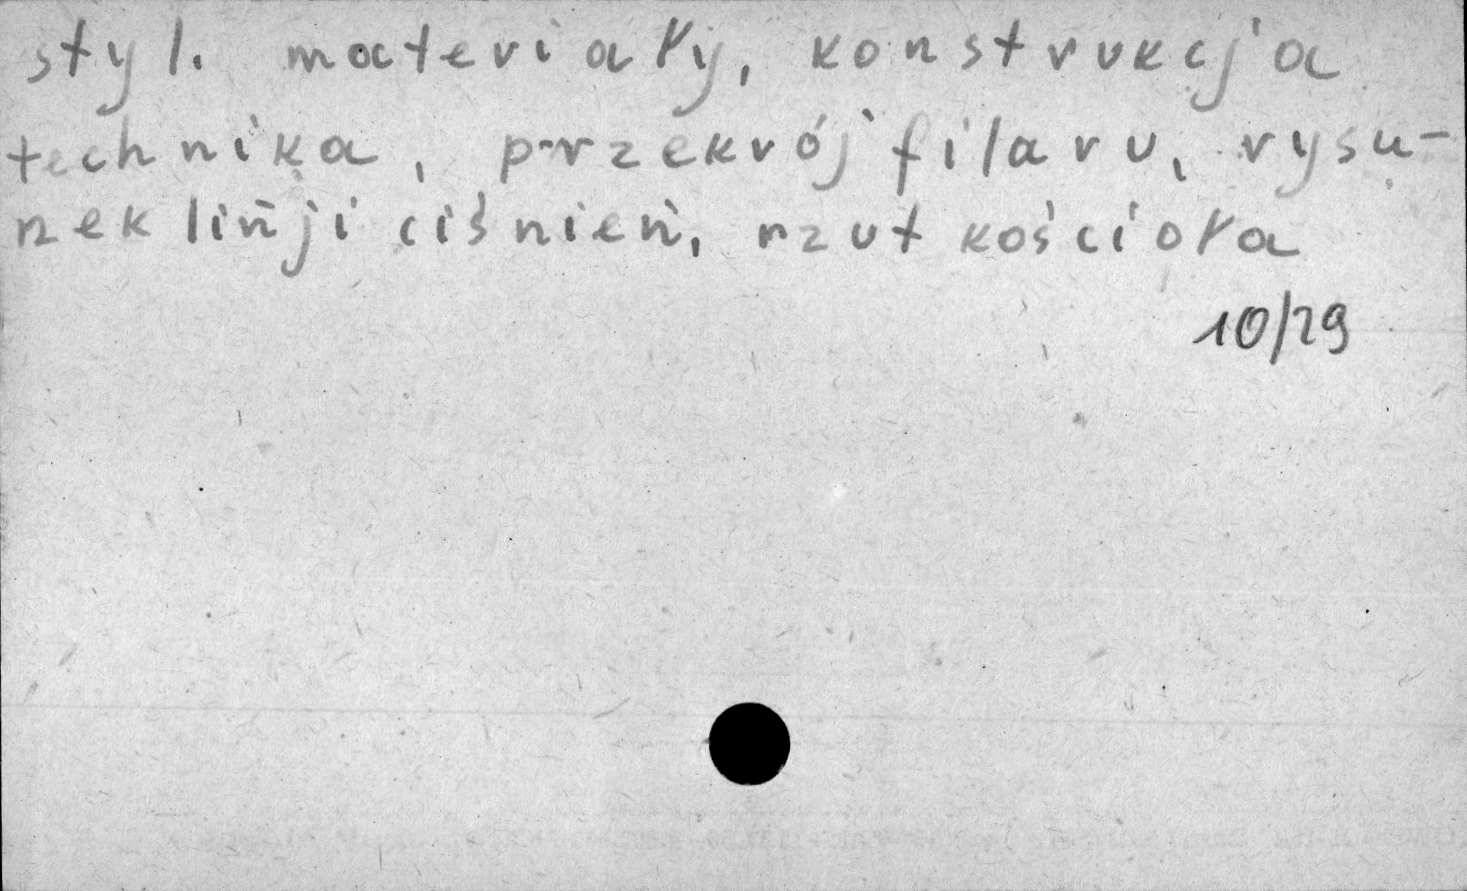 styl. materiały, konstrukcja
technika, przekrój filaru, rysu-
nek linji ciśnień, rzut kościoła
10/29